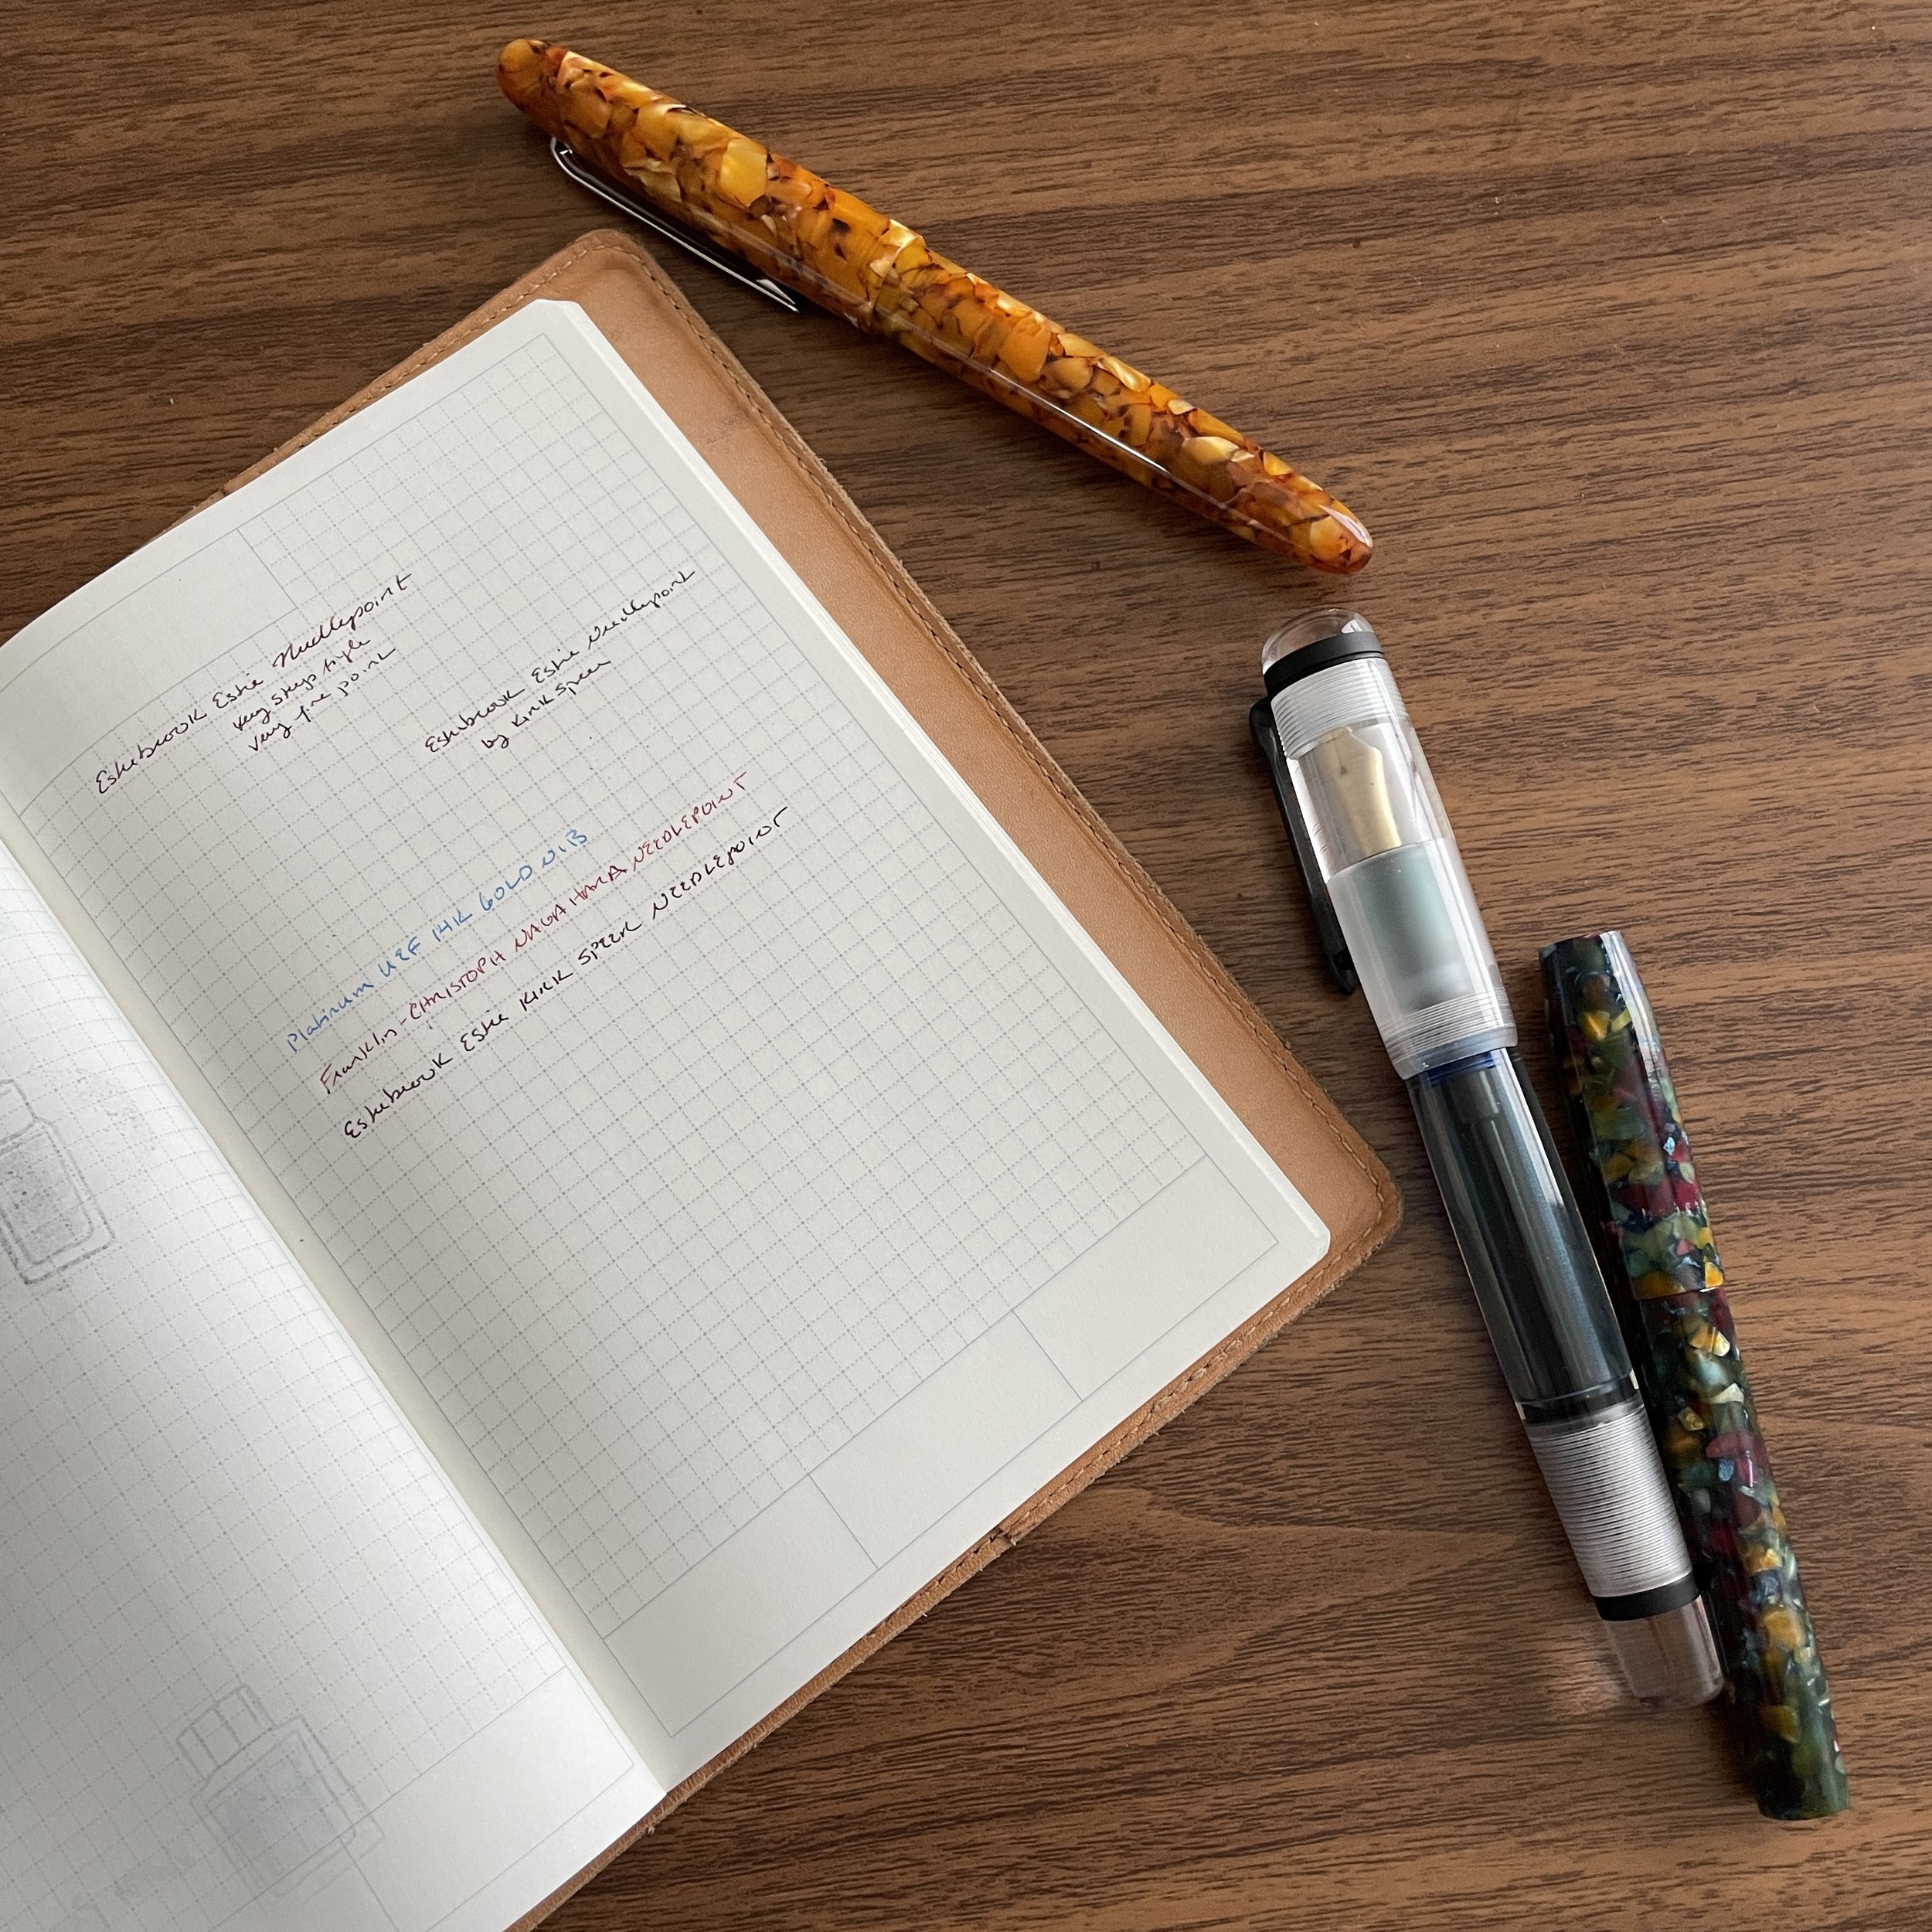 Esterbrook Estie Needlepoint
very steep triple
very fine point
Esterbrook Estie Needlepoint
by Kirk Speer
Platinum UEF 14K GOLD NIB
Franklin-CHRISTOPH NAGAHARA NEEDLEPOINT
Esterbrook Estie KIRK SPEER NEEDLEPOINT